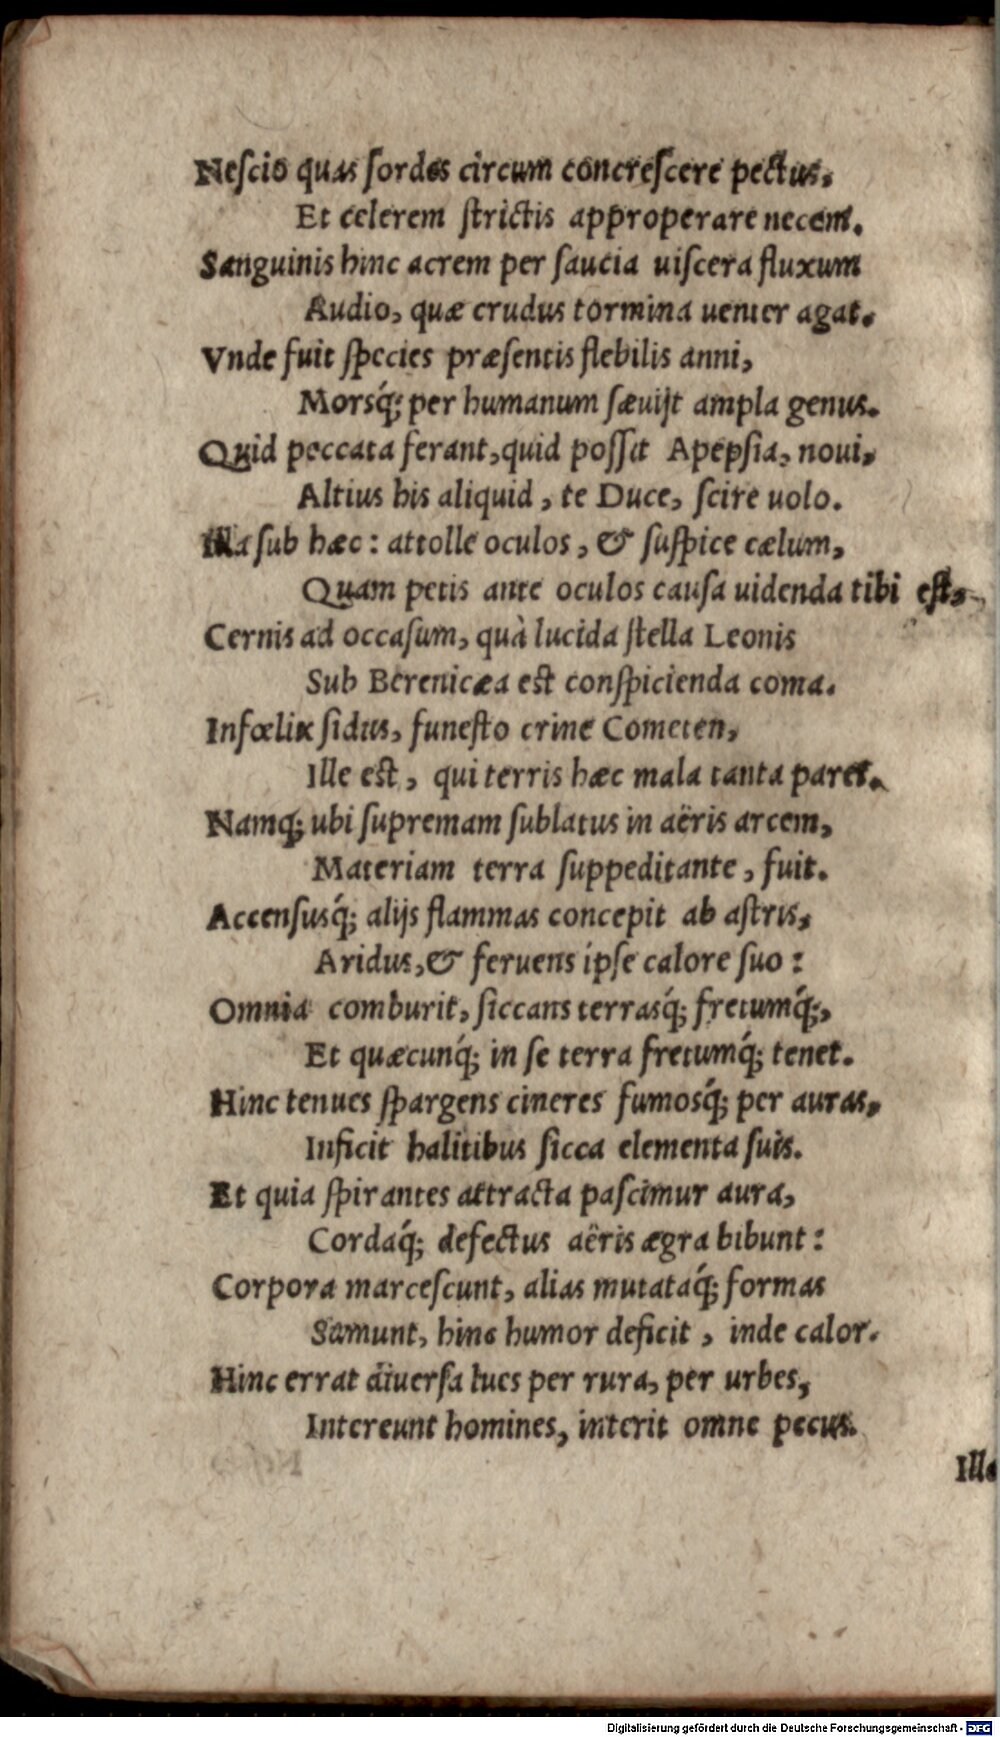 Nescio quas sordes circum concrescere pectus,
Et celerem strictis approperare necem.
Sanguinis hinc acrem per saucia uiscera fluxum
Audio, quæ crudus tormina uenter agat.
Vnde fuit species præsentis flebilis anni,
Morsq́; per humanum sæuijt ampla genus.
Quid peccata ferant, quid possit Apepsia, noui,
Altius his aliquid, te Duce, scire uolo.
Illa sub hæc: attolle oculos, & suspice cælum,
Quam petis ante oculos causa uidenda tibi est.
Cernis ad occasum, quà lucida stella Leonis
Sub Berenicæa est conspicienda coma.
Infœlix sidus, funesto crine Cometen,
Ille est, qui terris hæc mala tanta paret.
Namq; ubi supremam sublatus in aëris arcem,
Materiam terra suppeditante, fuit.
Accensusq́; alijs flammas concepit ab astris,
Aridus, & feruens ipse calore suo:
Omnia comburit, siccans terrasq́; fretumq́;,
Et quæcunq́; in se terra fretumq́; tenet.
Hinc tenues spargens cineres fumosq́; per auras,
Inficit halitibus sicca elementa suis.
Et quia spirantes attracta pascimur aura,
Cordaq́; defectus aëris ægra bibunt:
Corpora marcescunt, alias mutataq́; formas
Sumunt, hinc humor deficit, inde calor.
Hinc errat diuersa lues per rura, per urbes,
Intereunt homines, interit omne pecus.
Illa
Digitalisierung gefördert durch die Deutsche Forschungsgemeinschaft - DFG